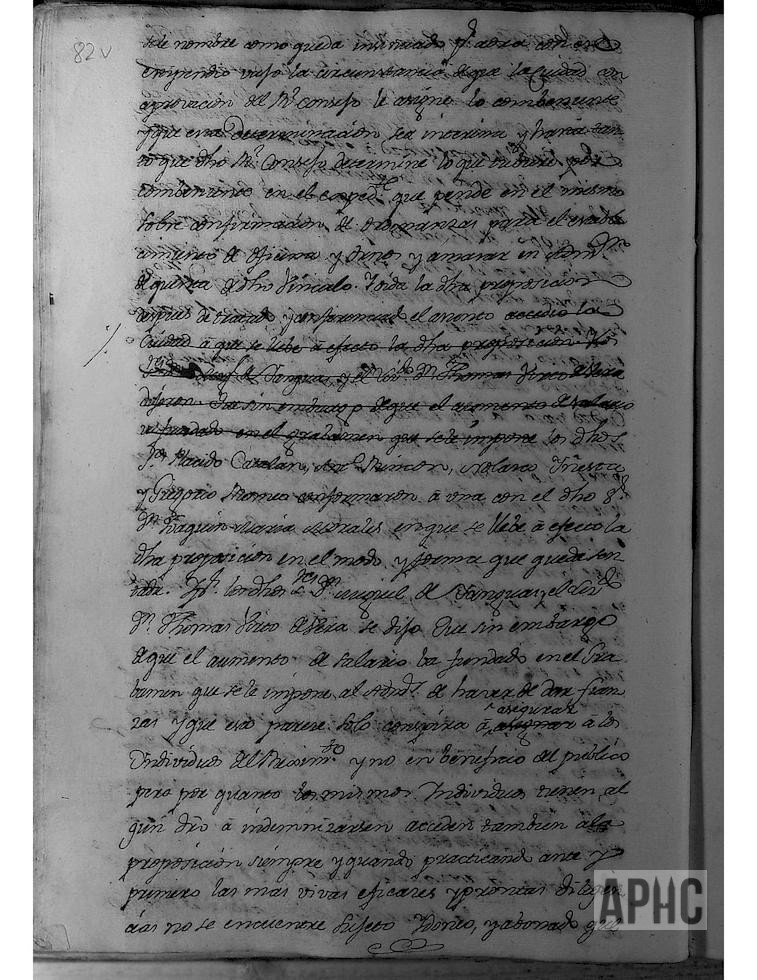 82v
se le nombre como queda insinuado pr. aora con este
estipendio vajo la circunstancia de que la Ciudad con
aprovacion del Rl. Consejo le asigne lo combeniente
y que esta determinacion sea interina y hasta tan
to que dho Rl. Consejo determine lo que tubiere por
combeniente en el expedte. que pende en el mismo
sobre confirmacion de ordenanzas para el estable
cimiento de oficina y
de quenta de dho Vinculo. Toida la dha proposicion
despues de tratado y conferenciado el asunto accedio la
Ciudad a que se llebe a efecto la dha proposicion
de Tangua, y el Thomas Forto de Vera
dijeron. Que sin embargo de que el aumento de salario
va fundado en el gravamen que se le impone los dhos
Placido Catalan, Rincon, Nolasco Yñesta
y Gregorio Romeo conformaron a una con el dho Sr.
Dn. Joaquin Maria Morales en que se llebe a efecto la
dha proposicion en el modo y forma que queda sen
tada. los dhos Dn. Miguel de Tanguas, y el
Dn. Thomas Forto de Vera se dijo Que sin embargo
de que el aumento de salario ba fundado en el Gra
bamen que se le impone al Admr. de haver de dar fian
zas y que esto parece solo conspira a asegurar a los
Yndividuos del y no en beneficio del publico
pero por quanto los mismos Yndividuos tienen al
gun dro a indemnizarsen acceden tambien a la
proposicion siempre y quando practicando ante y
primero las mas vivas eficaces y promtas diligen
cias no se encuentre sujeto Ydoneo, y abonado que
APHC